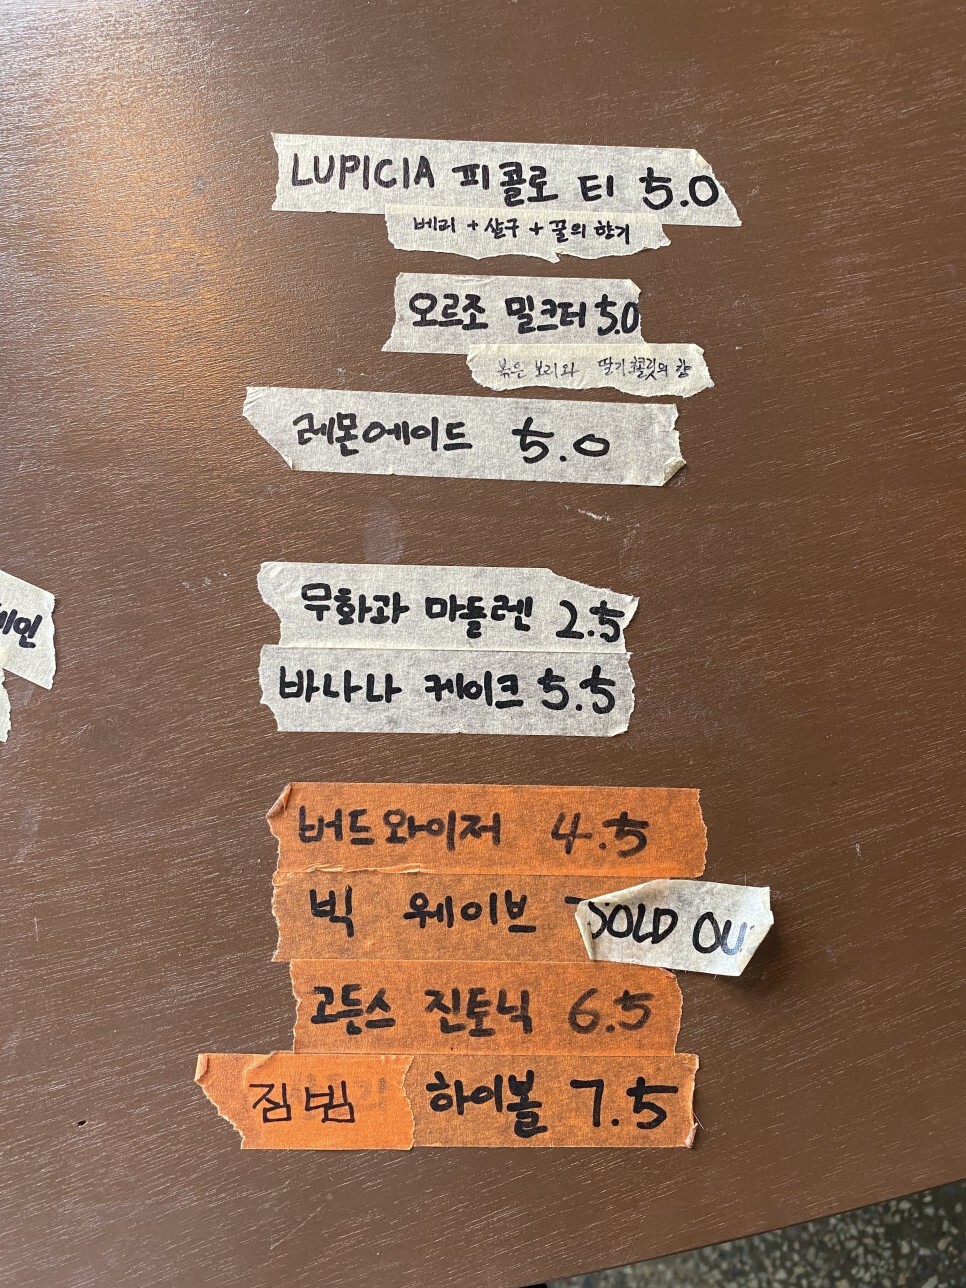 LUPICIA 피콜로 티 5.0
베리 + 살구 + 꿀의 향기
오르조 밀크티 5.0
볶은 보리와 딸기초콜릿의 향
레몬에이드 5.0
무화과 마들렌 2.5
바나나 케이크 5.5
버드와이저 4.5
빅 웨이브 SOLD OU
고든스 진토닉 6.5
짐빔 하이볼 7.5